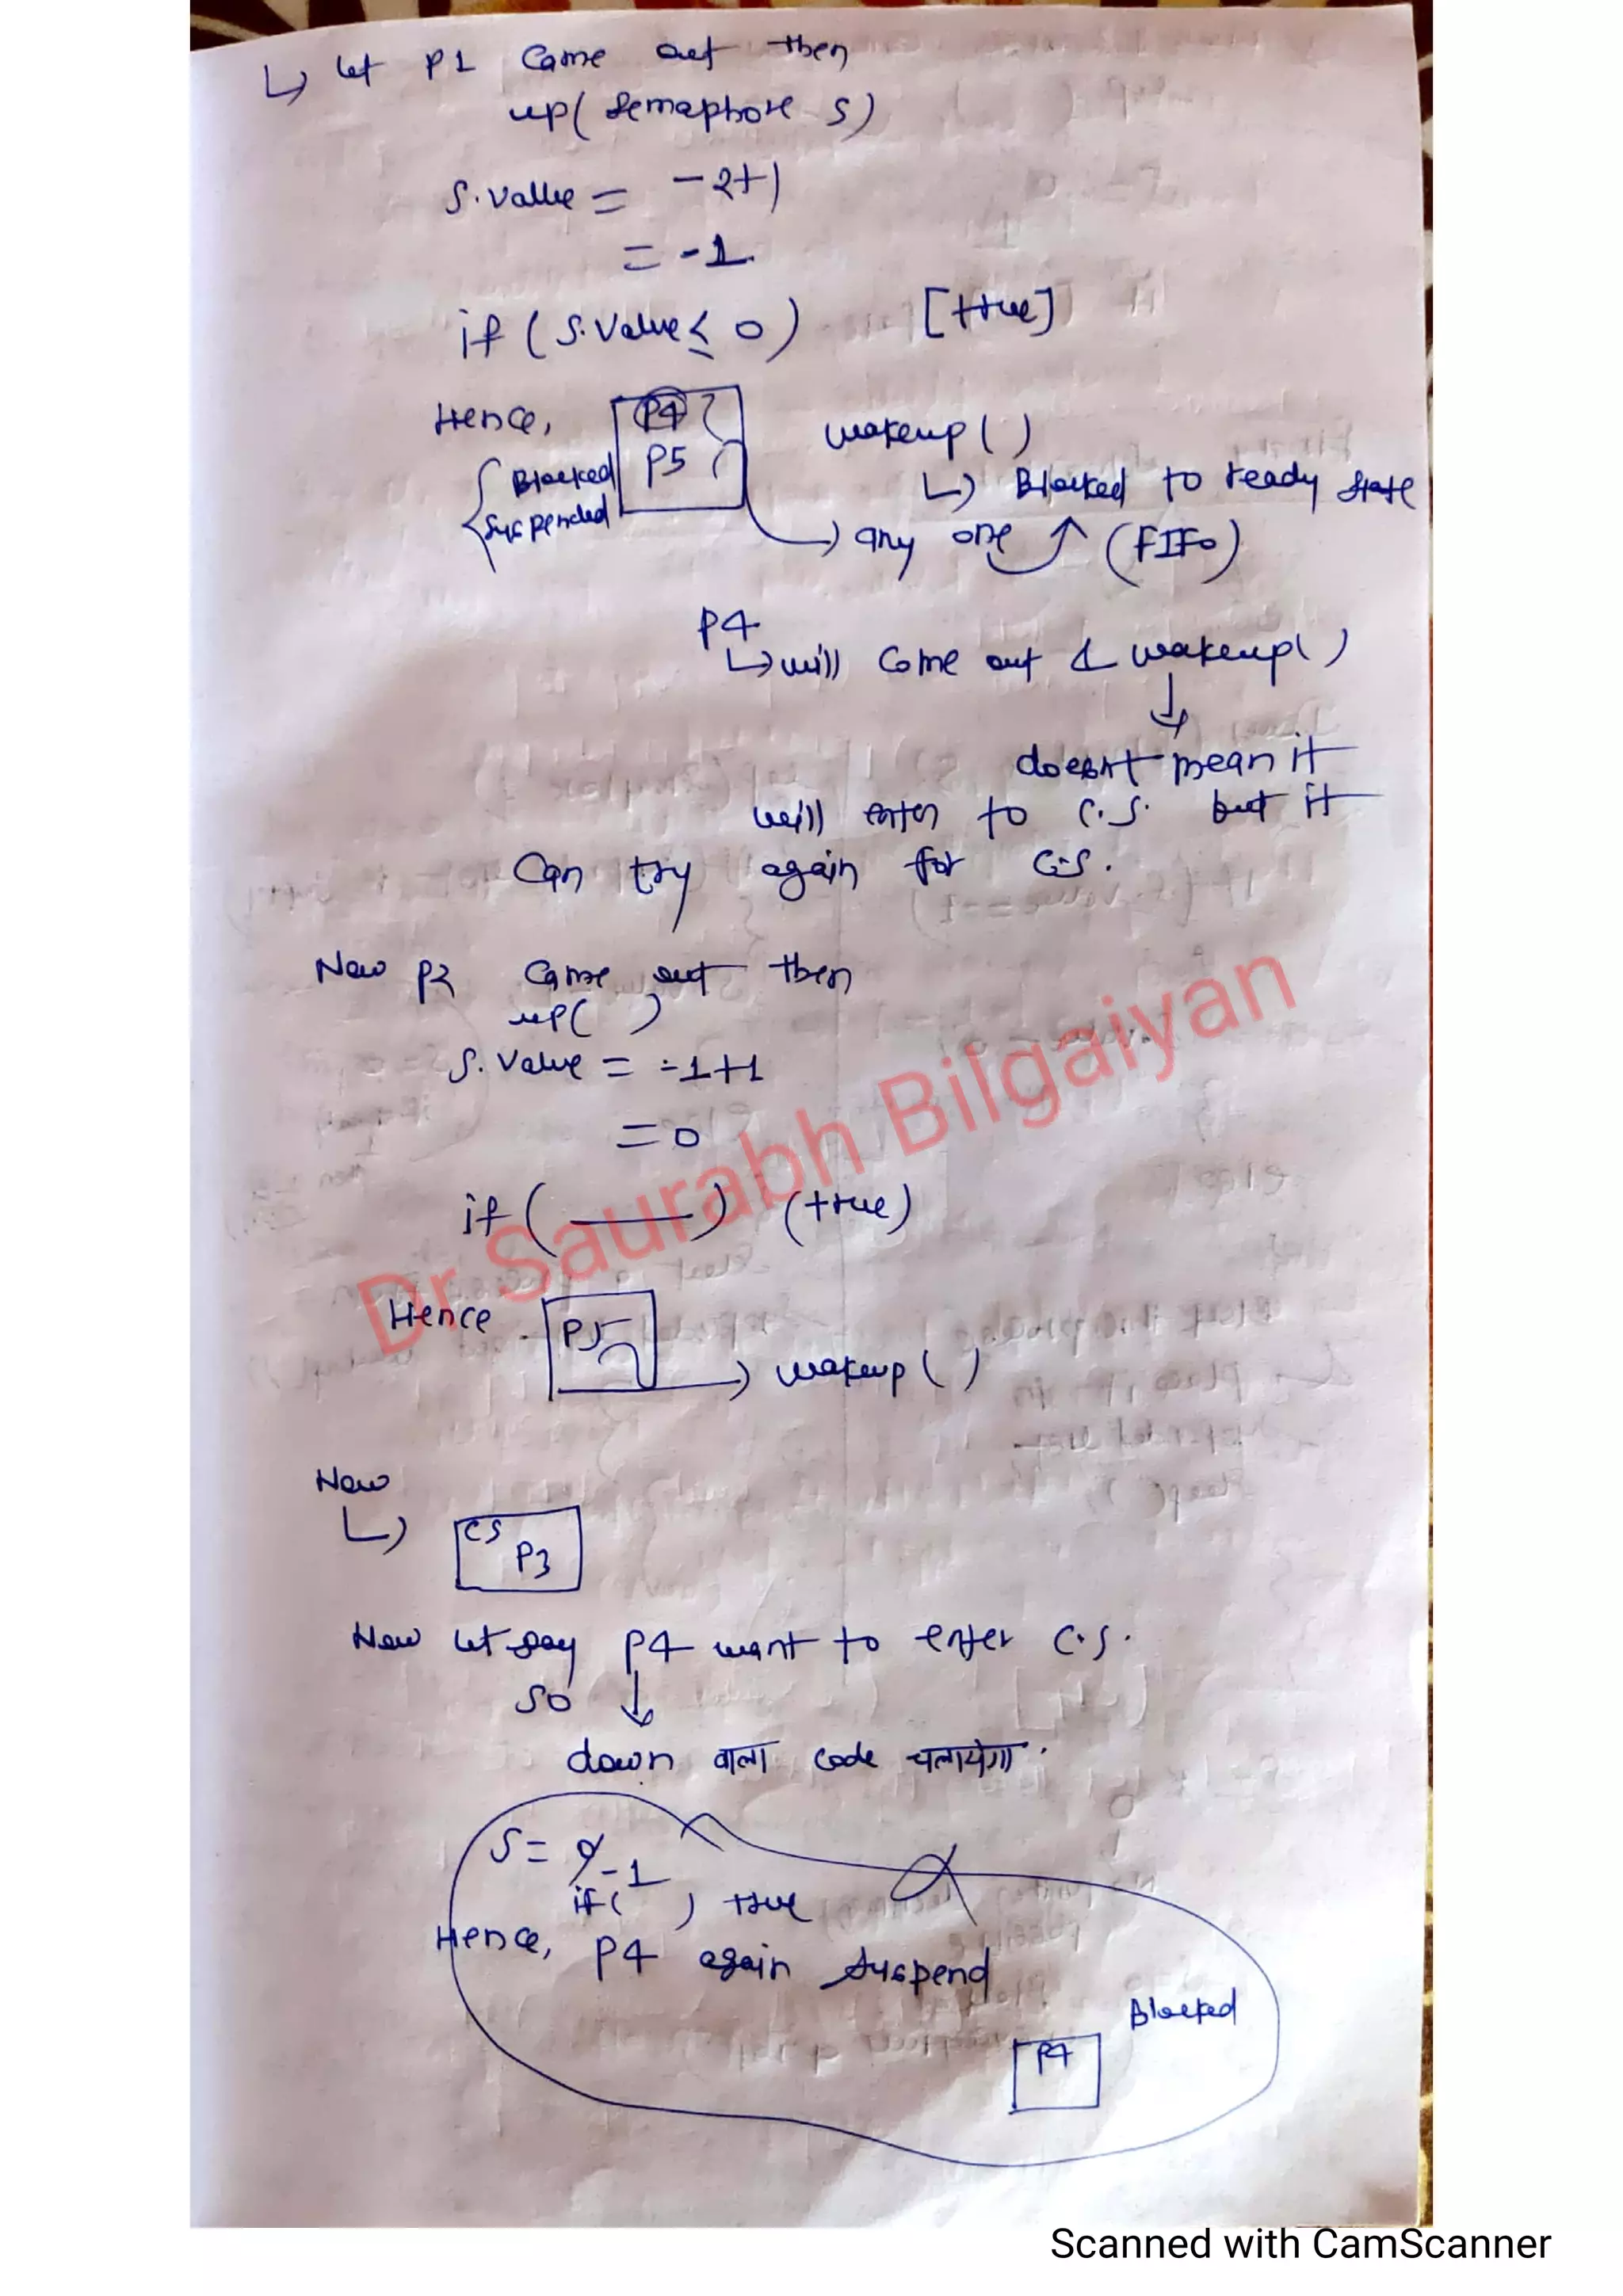 ↳ let P1 came out then
up( semaphore S)
S.value = -2+1
= -1
if ( S.value ≤ 0 ) [true]
Hence, P4 wakeup( )
Blocked P5 ↳ Blocked to ready state
suspended → any one ↑ (FIFO)
P4
↳ will come out & wakeup( )
↓
doesn't mean it
will enter to C.S. but it
Can try again for C.S.
Now P2 came out then
up( )
S.value = -1+1
= 0
if ( ——— ) (true)
Dr Saurabh Bilgaiyan
Hence P5
→ wakeup( )
Now
↳ CS
P3
Now let say P4 want to enter C.S.
so ↓
down वाला code चलायेगा.
S = 0 -1
if( ) true
Hence, P4 again suspend
Blocked
P4
Scanned with CamScanner